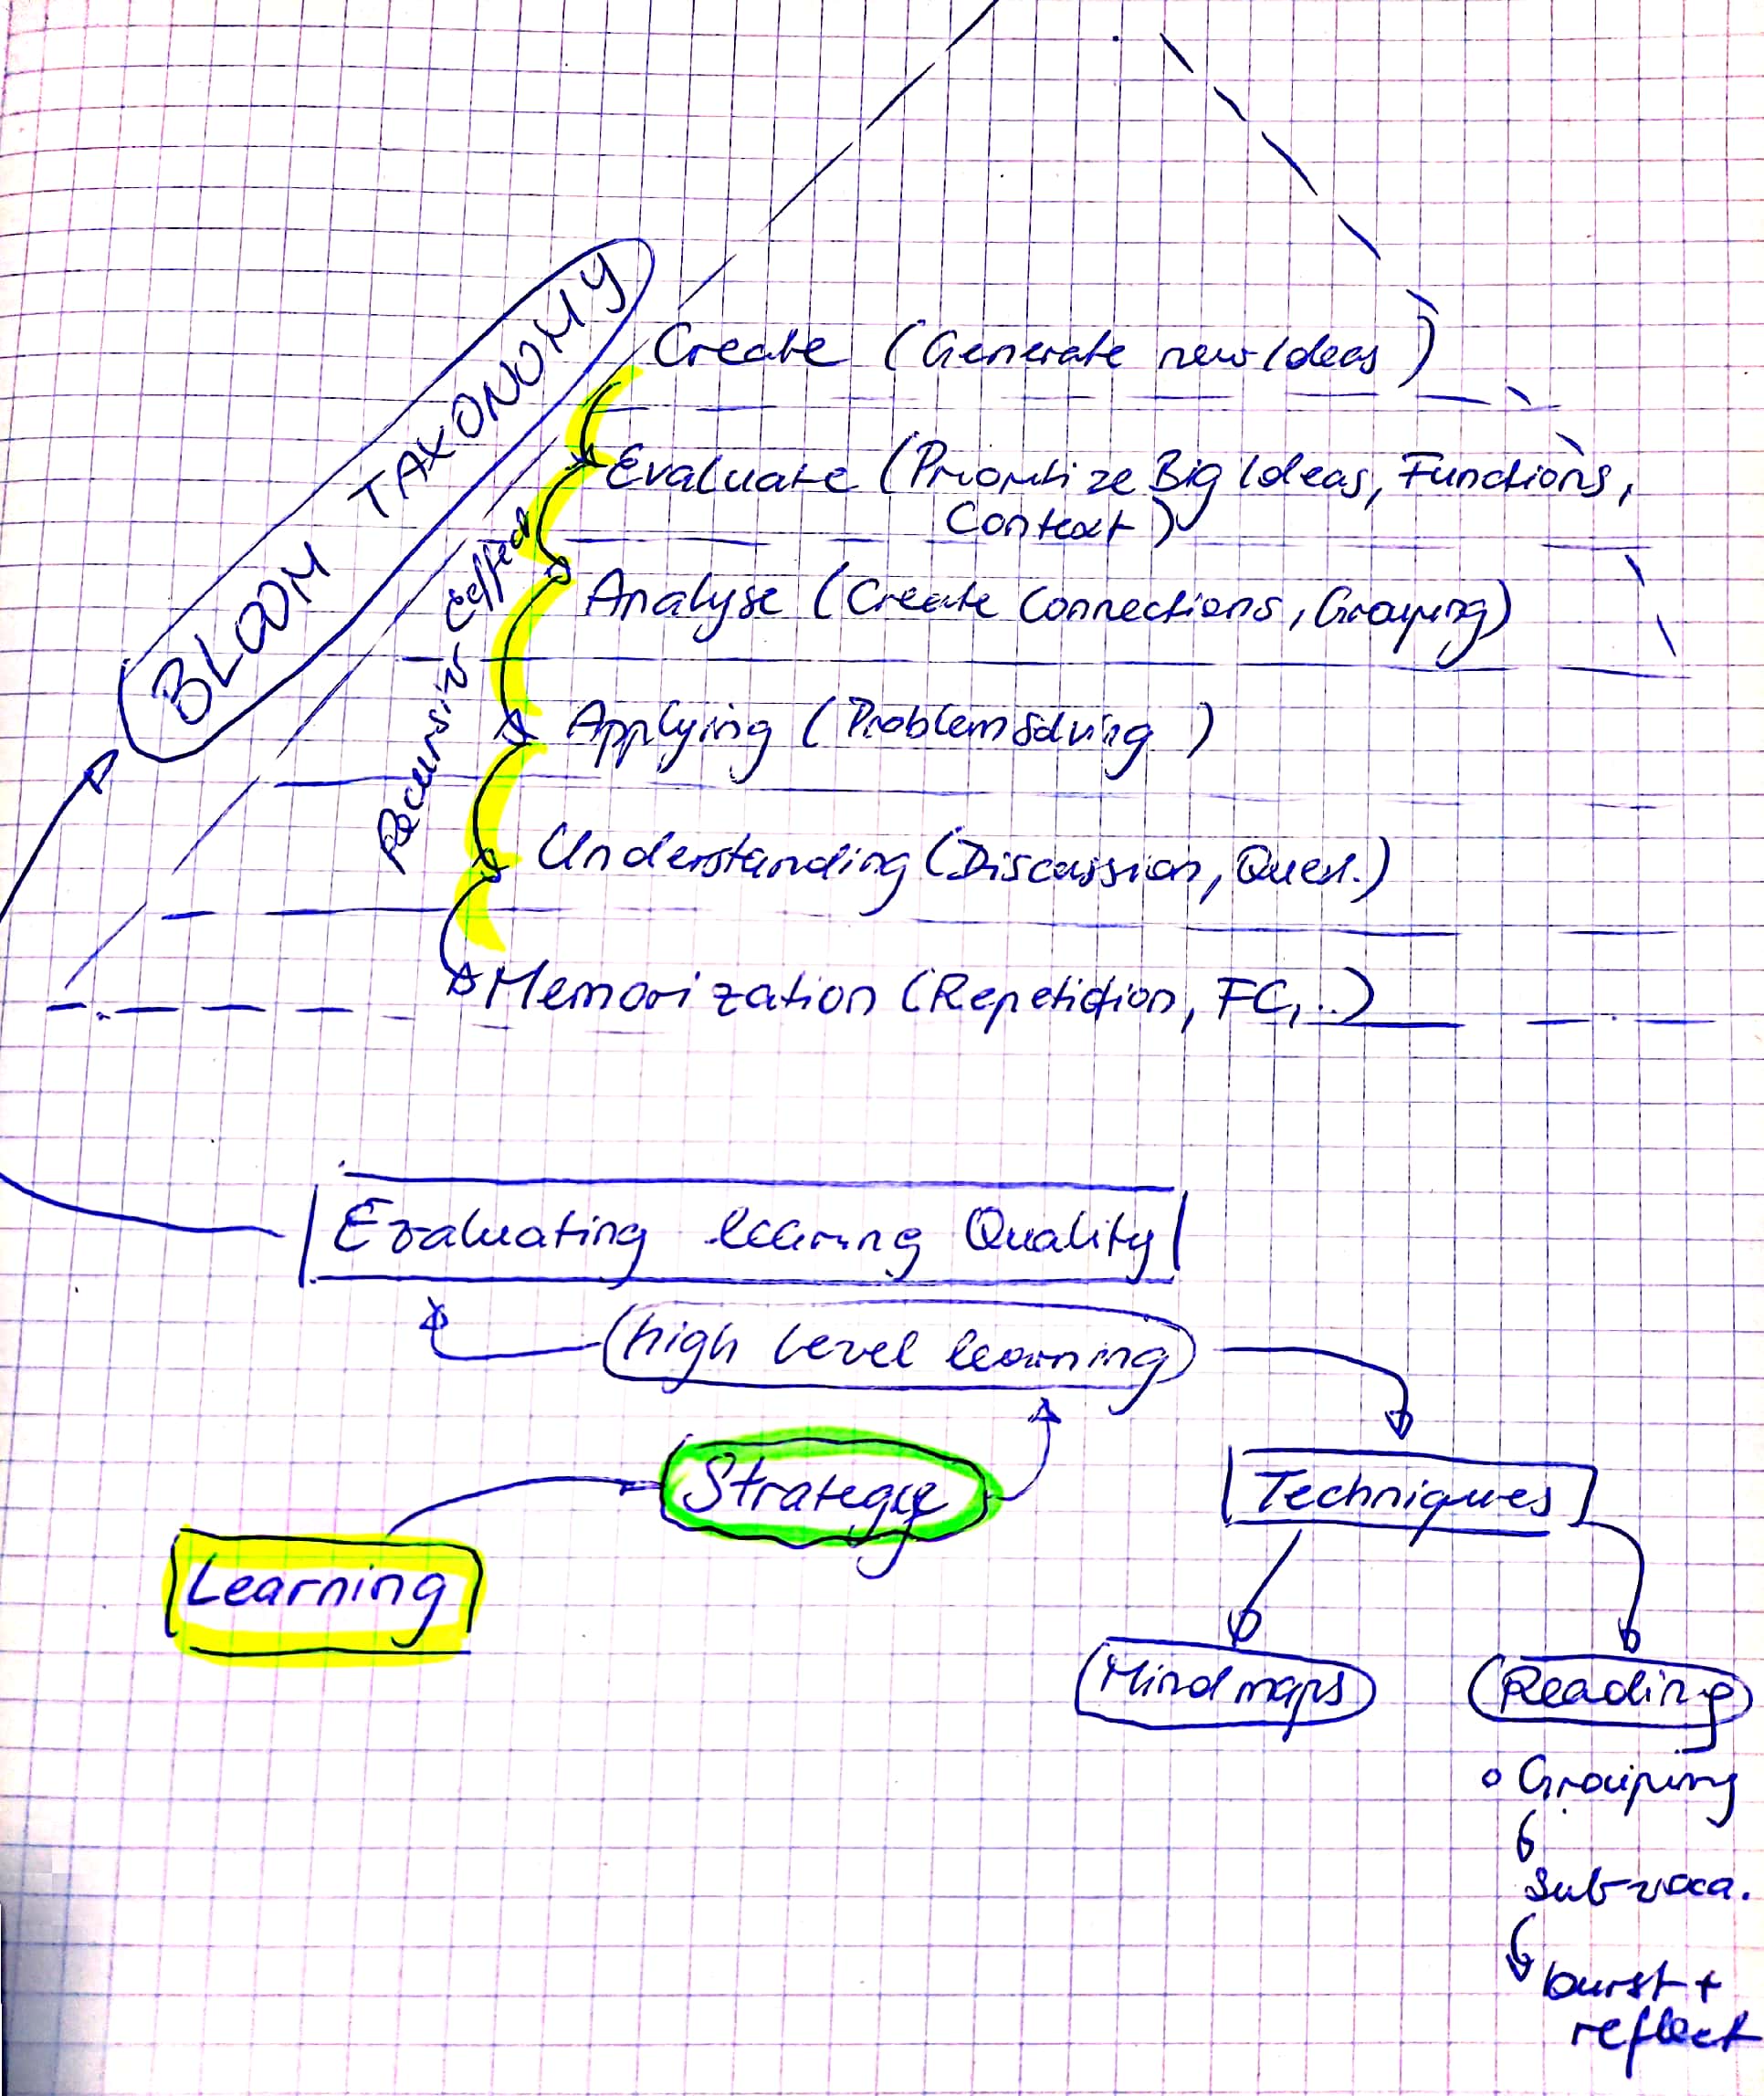 BLOOM TAXONOMY
Create (Generate new Ideas)
Evaluate (Prioritize Big Ideas, Functions,
Context)
Analyse (Create Connections, Grouping)
Recursiv Effect
Applying (Problemsolving)
Understanding (Discussion, Ques.)
Memorization (Repetition, FC, ..)
Evaluating learning Quality
high Level learning
Strategy
Techniques
Learning
Mindmaps
Reading
Grouping
Sub-voca.
burst +
reflect